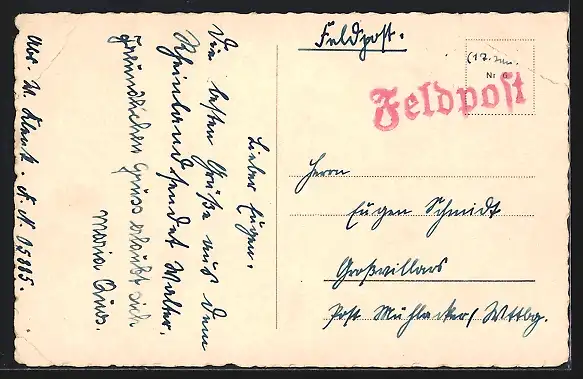 Feldpost.
(17. Jan.
Nr 6
Feldpost
Herrn
Eugen Schmidt
Großvillars
Post Mühlacker/ Wttbg.
Lieber Eugen.
Die besten Grüße aus dem
Rheinland sendet Walter.
Freundlichen Gruss erlaubt sich
Maria
Abs. W. Klenk. F. N. 05885.